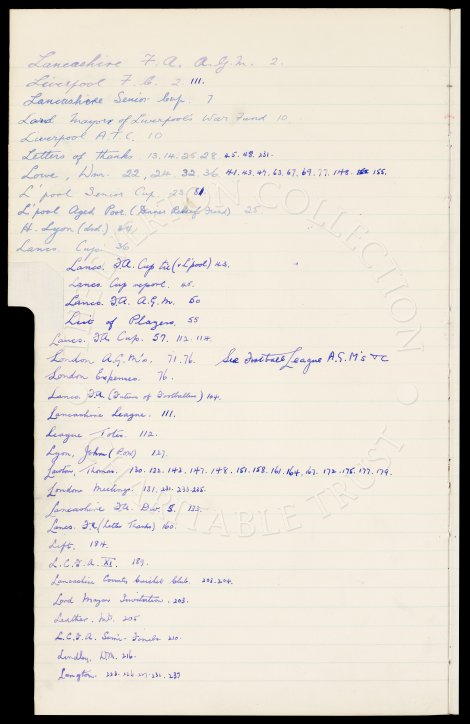 Lancashire F.A. A.G.M. 2.
Liverpool F.C. 2 111.
Lancashire Senior Cup. 7
Lord Mayors of Liverpool's War Fund 10
Liverpool A.T.C. 10
Letters of thanks 13. 14. 25. 28. 45. 48. 231.
Lowe, Wm. 22, 24. 32. 36 41. 43. 47. 63. 67. 69. 77. 148. 155.
L'pool Senior Cup. 23
L'pool Aged Poor. ( Relief Fund) 25
H. Lyon (dsd)
Lancs. Cup. 36
Lancs. F.A. Cup tie (v L'pool) 43.
Lancs. Cup report. 45.
Lancs. F.A. A.G.M. 50
List of Players. 55
Lancs. F.A. Cup. 57. 112. 114.
London A.G.M's. 71. 76. See Football League A.G.M's &c
London Expenses. 76.
Lancs. F.A. (Future of Footballers) 104.
Lancashire League. 111.
League Tables. 112.
Lyon, John (POW) 127.
Lawton, Thomas. 130. 132. 142. 147. 148. 151. 158. 161. 164. 167. 172. 175. 177. 179.
London Meetings. 131. 231. 233. 235.
Lancashire F.A. Div. 5. 133.
Lancs. F.A. (Letter Thanks) 160.
Lift. 184.
L.C.F.A. XI. 189.
Lancashire County Cricket Club. 203. 204.
Lord Mayors Invitation. 203.
Leather. 205
L.C.F.A. Semi-Finals 210.
Lindley, Wm. 216.
Langton.
COLLECTION
CHARITABLE TRUST